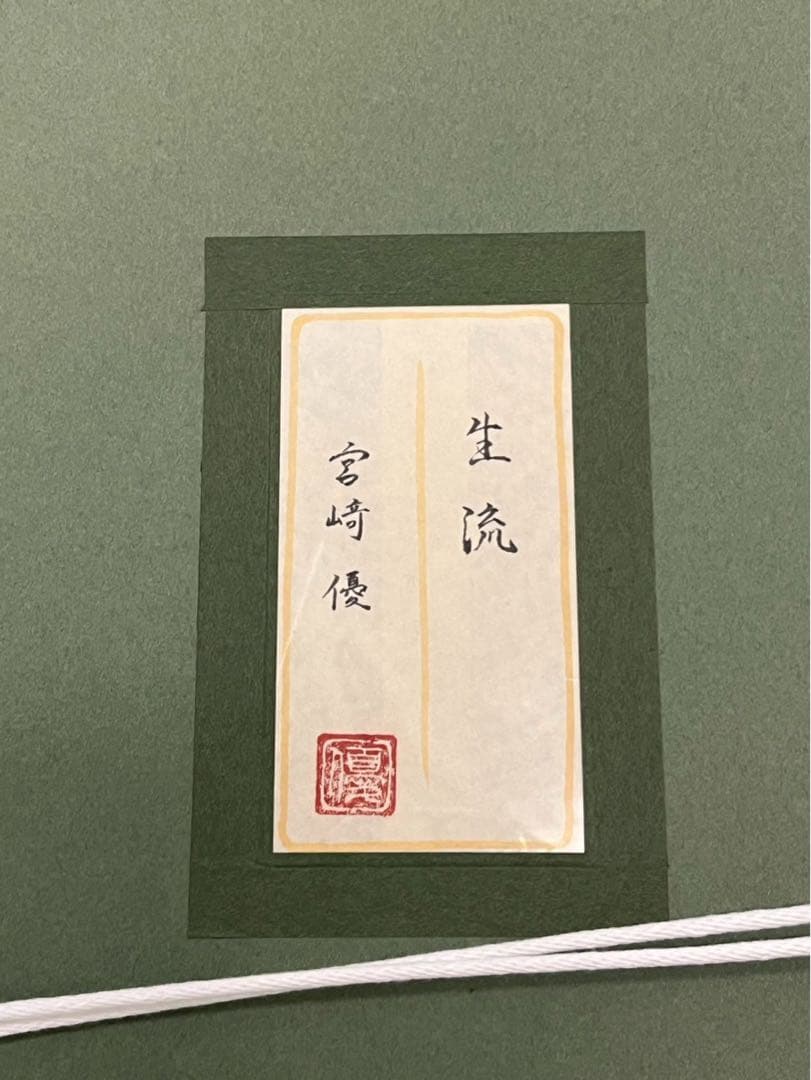 生流
宮﨑優
優